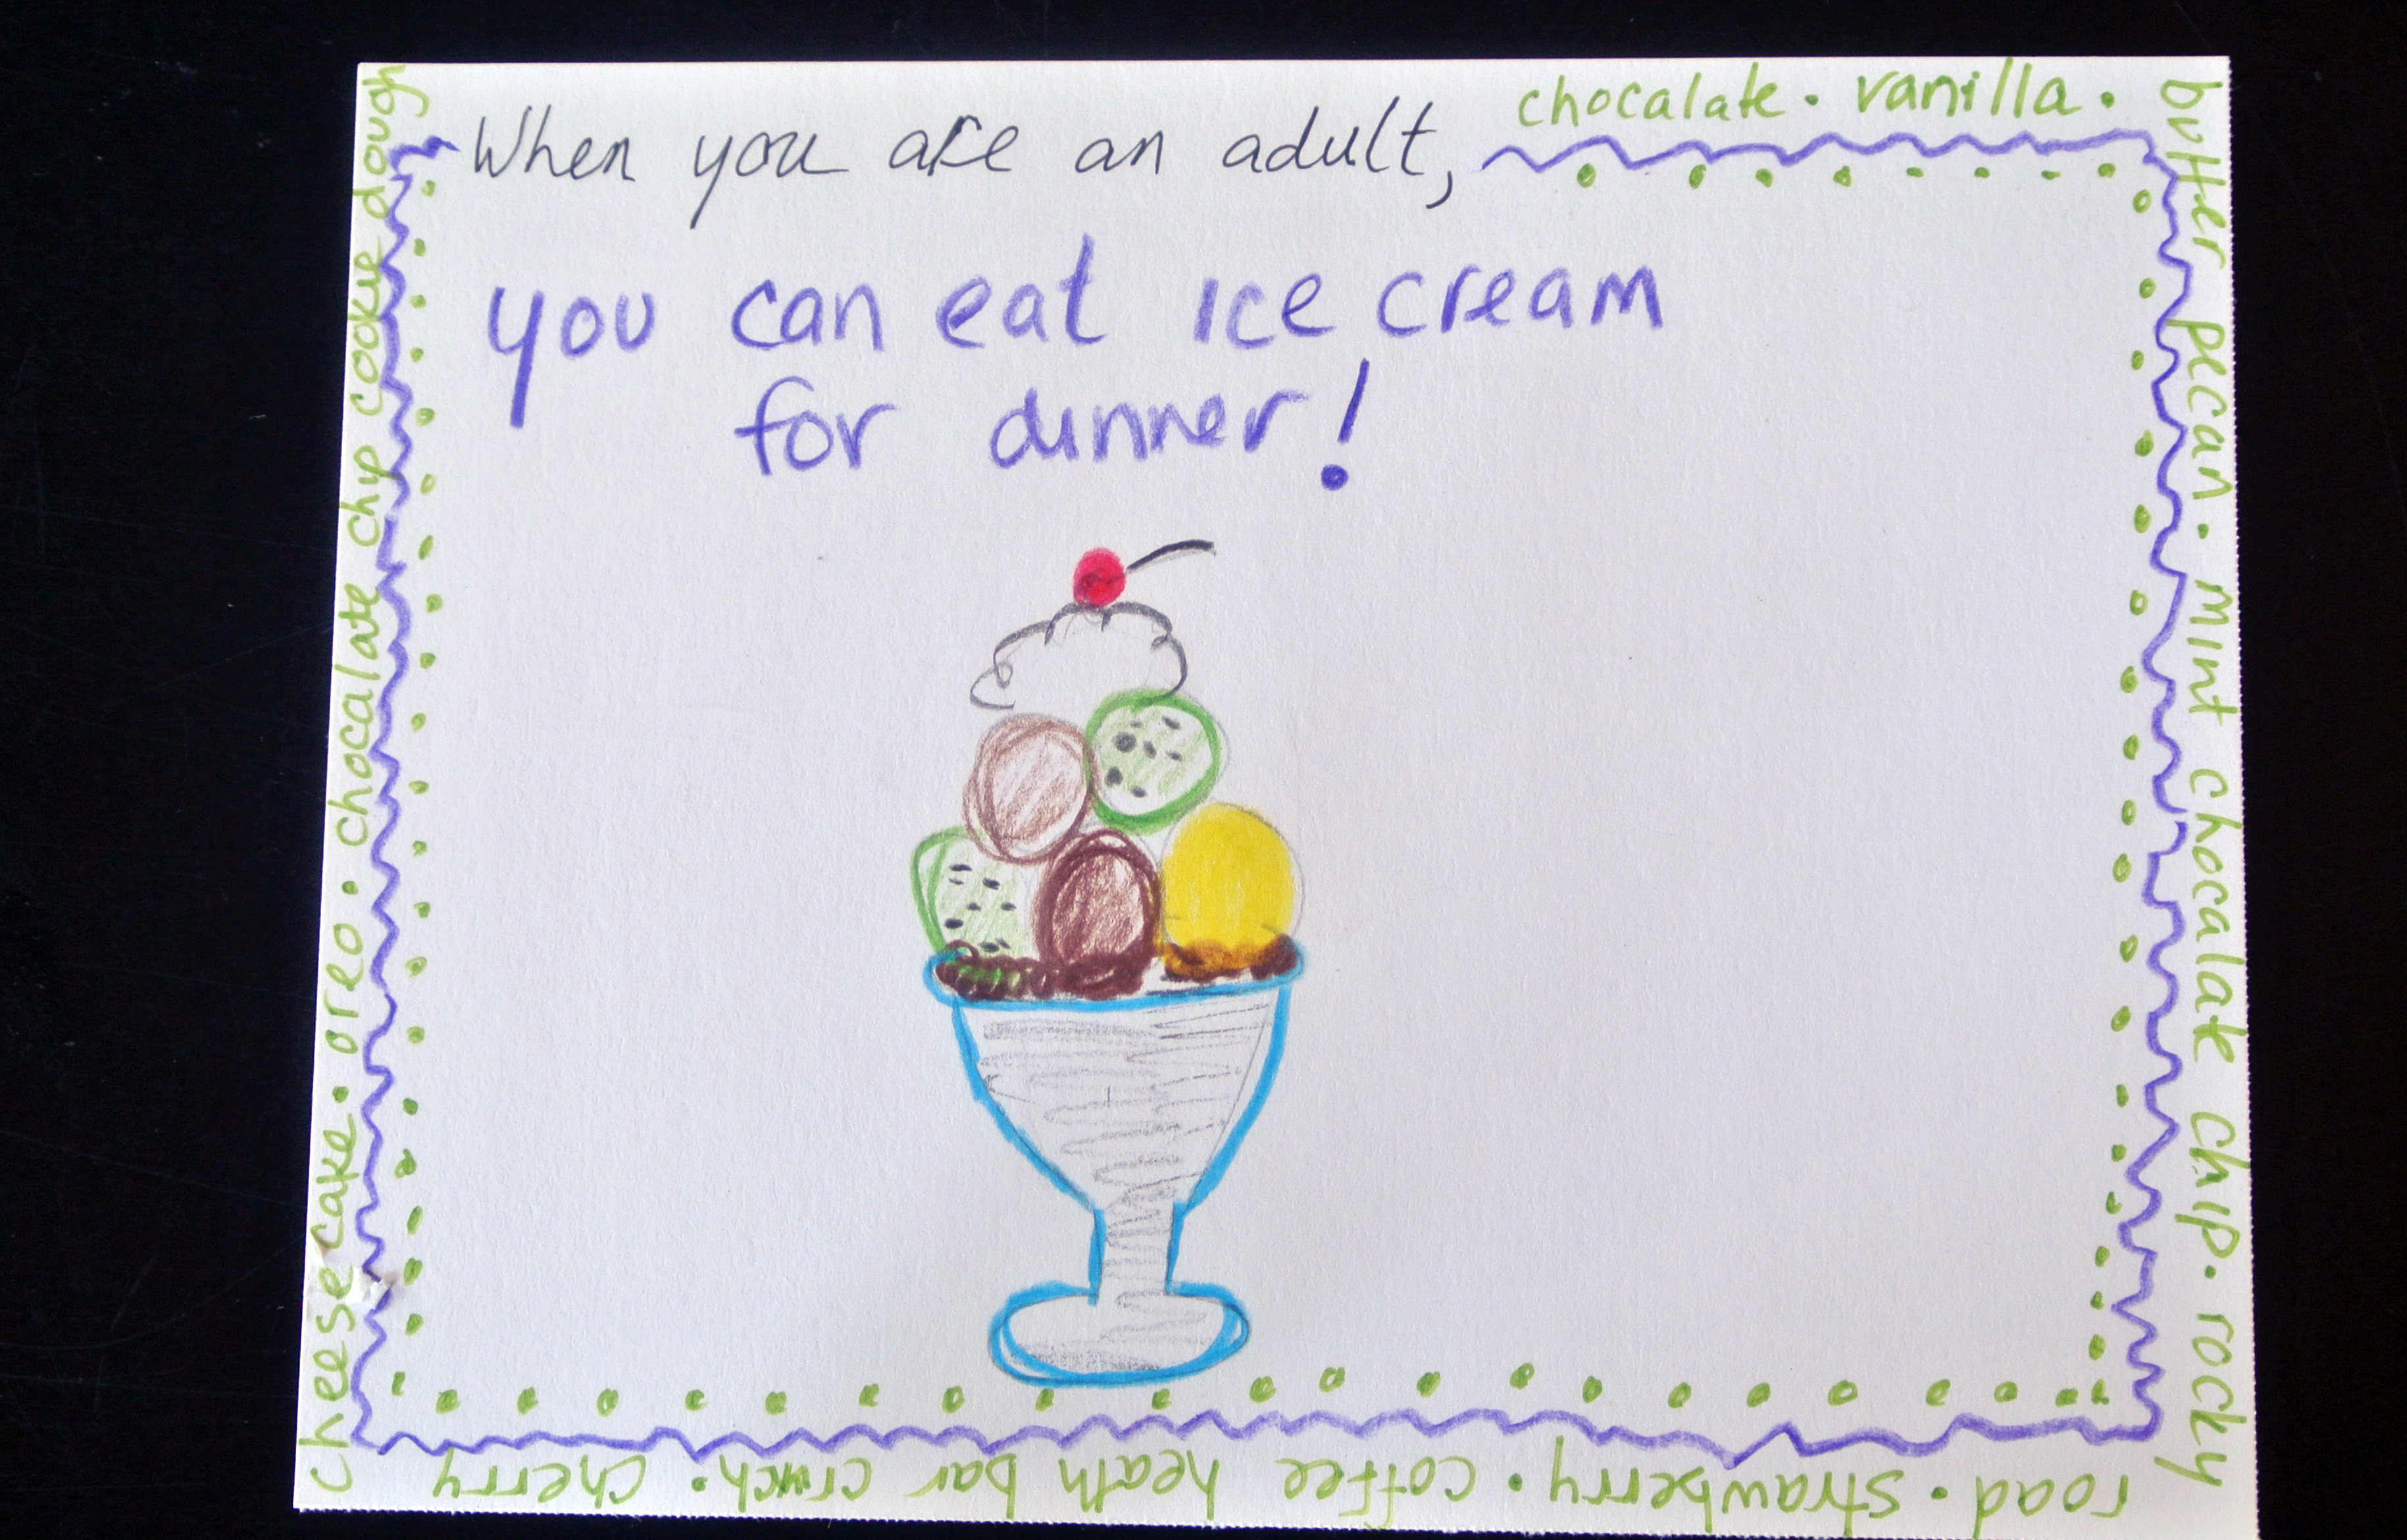 When you are an adult,
you can eat ice cream
for dinner!
chocalate. vanilla.
butter pecan. mint chocalate chip. rocky
road. strawberry. coffee heath bar crunch. cherry
cheesecake. oreo. chocalate chip cookie dough